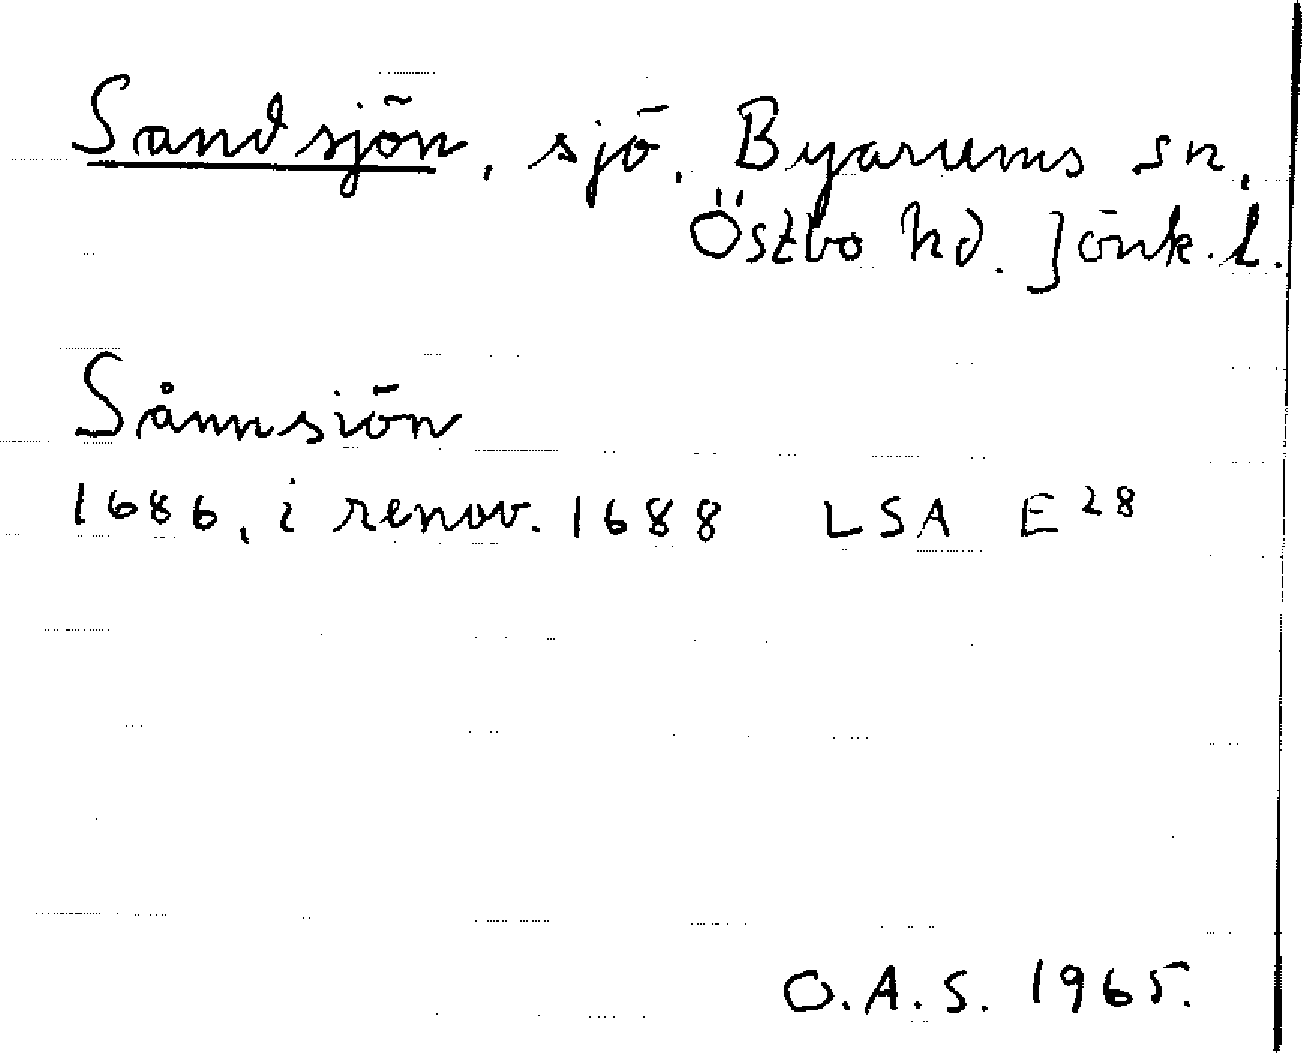 Sandsjön, sjö, Byarums sn,
Östbo hd. Jönk. l.
Sånnsiön
1686, i renov. 1688 LSA E 28
O.A.S. 1965.